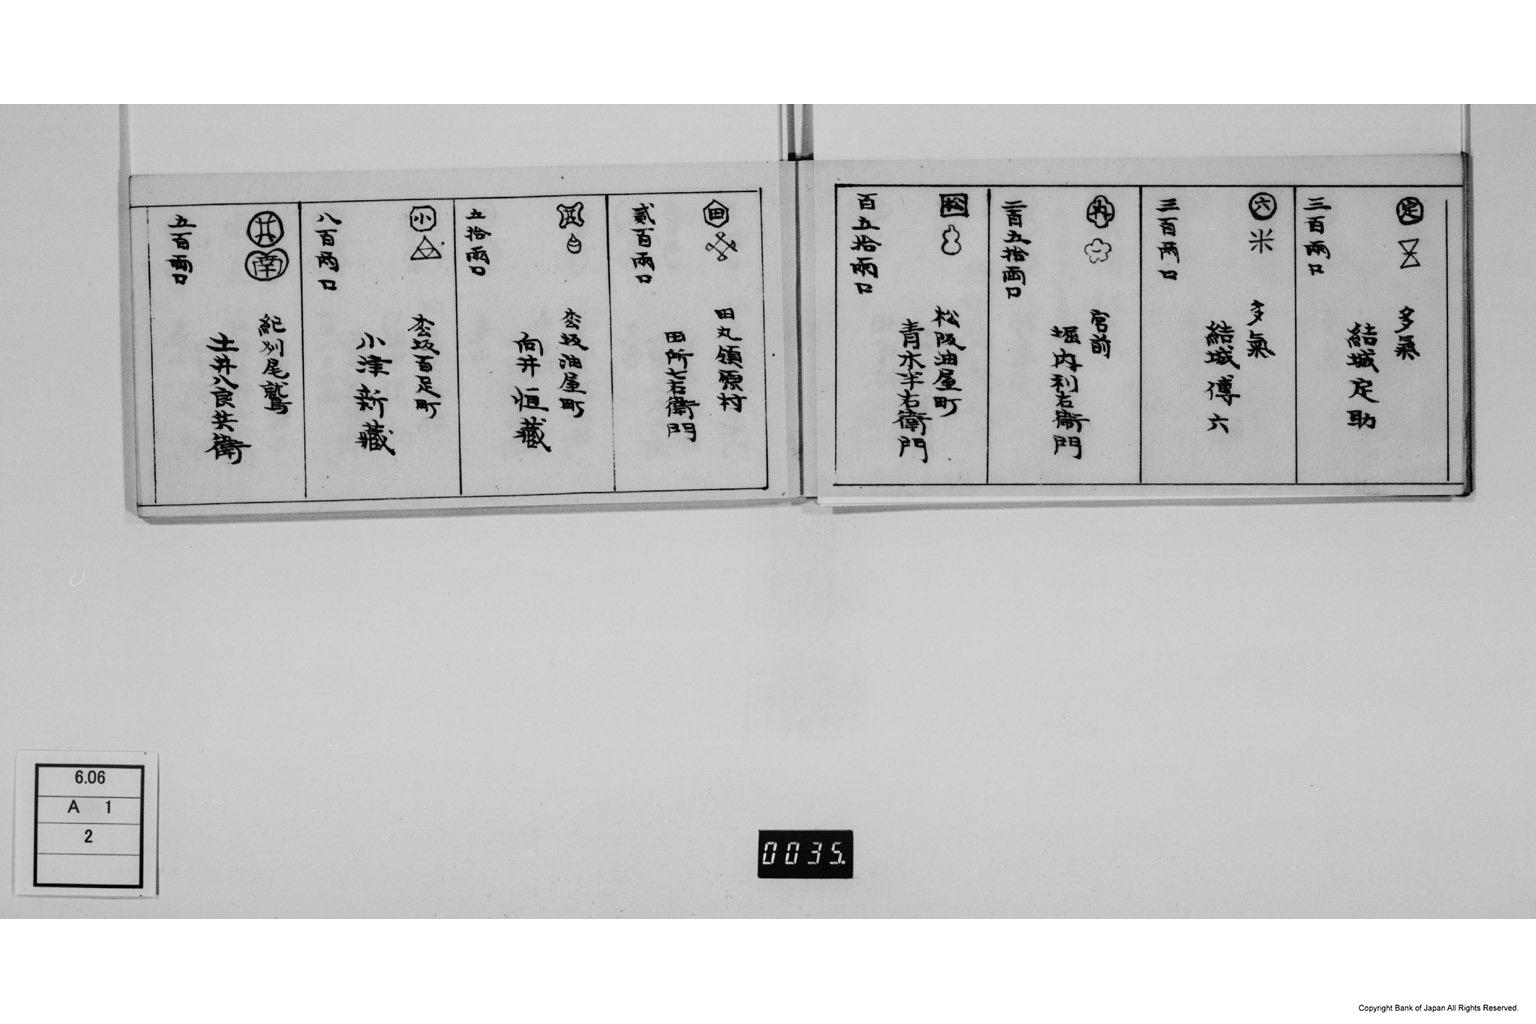 定
多氣
結城定助
三百両口
六
多氣
結城傳六
三百両口
内
宮前
堀内利右衛門
三百五拾両口
松
松阪油屋町
青木半右衛門
百五拾両口
田
田丸領原村
田所七右衛門
貳百両口
枩坂油屋町
向井恒藏
五拾両口
小
枩坂百足町
小津新藏
八百両口
井
南
紀刕尾鷲
土井八良兵衛
五百両口
6.06
A 1
2
0035.
Copyright Bank of Japan All Rights Reserved.